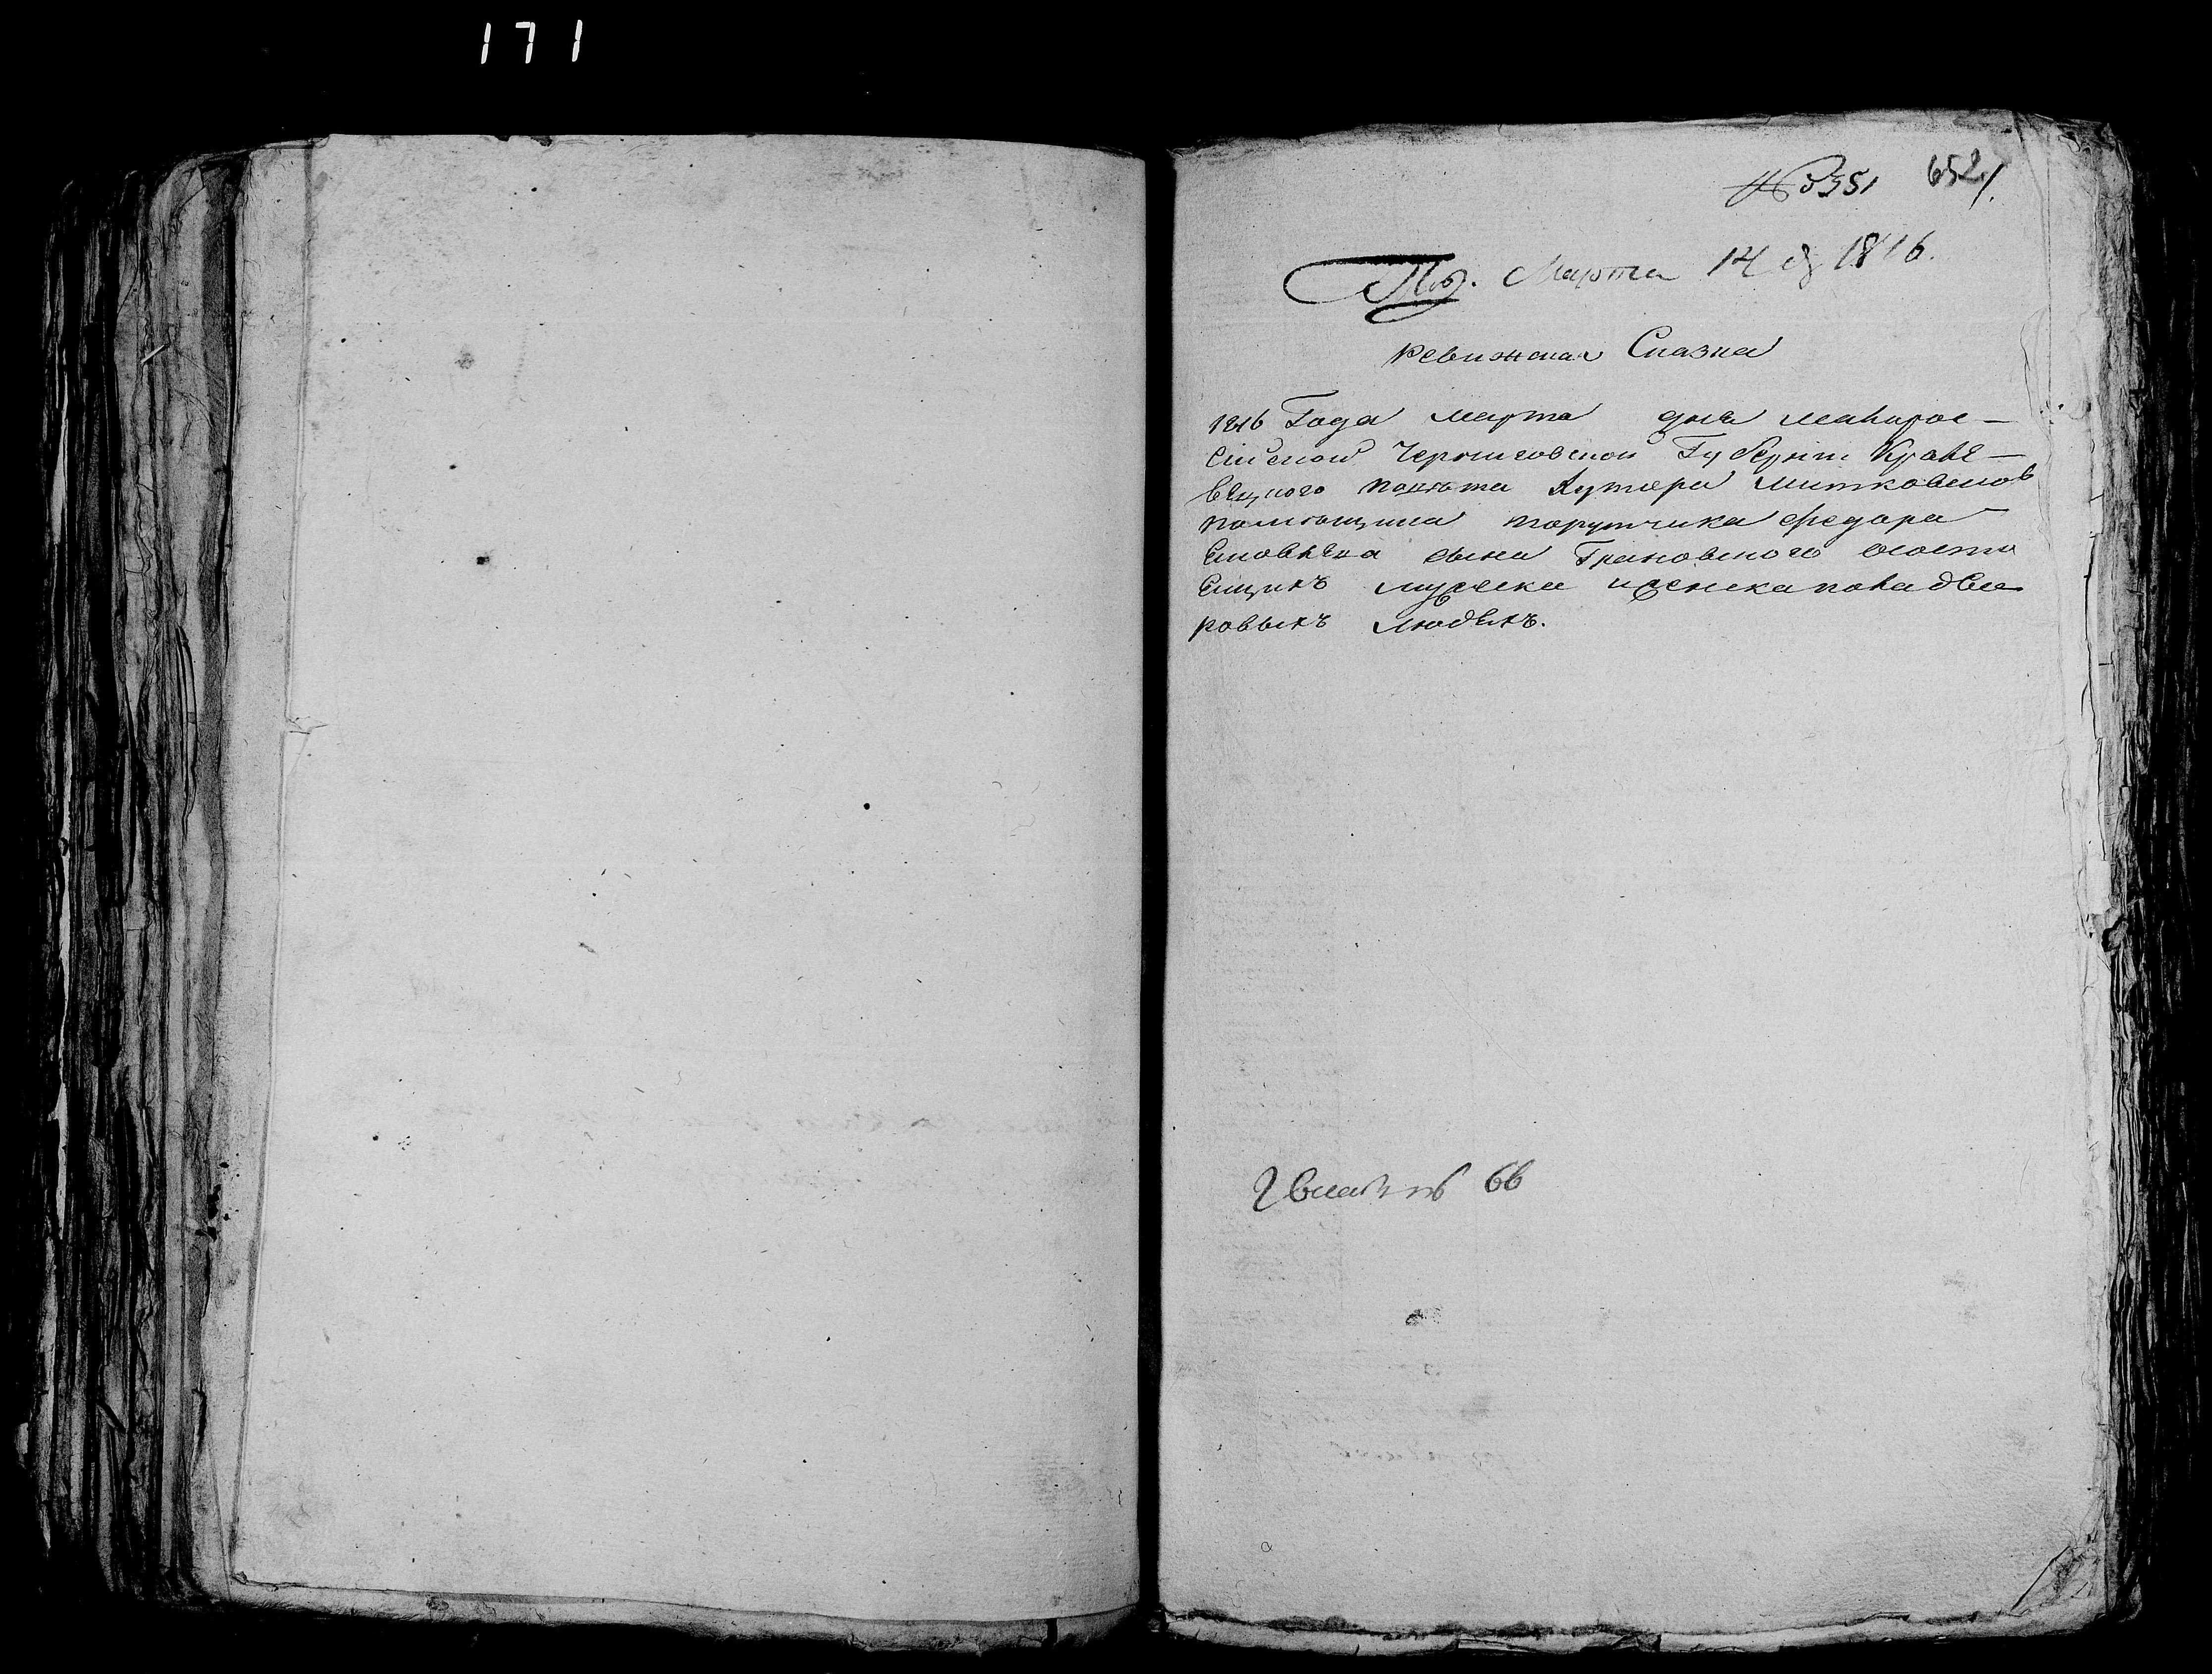 171
№ 351 652/.
По. Марта 14 д 1816.
Ревижская Сказка
1816 Года марта дня малорос–
сийской Черниговской Губернии Кроле–
вецкого повета Хутора Митковсков
помещика порутчика Федора
сына Грановского состо
ящихъ мужска и женска пола дво
ровыхъ людехъ.
66